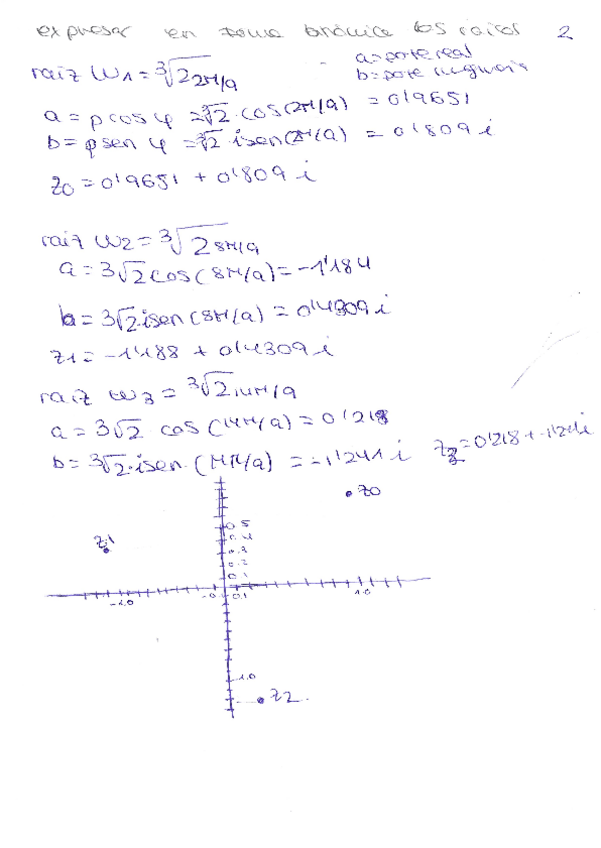 expresar en forma binómica las raíces 2
a = parte real
b = parte imaginaria
raiz W1 = ³√2 2π/9
a = ρ cos φ = ³√2 · cos(2π/9) = 0'9651
b = ρ sen φ = ³√2 · i sen(2π/9) = 0'809 i
z0 = 0'9651 + 0'809 i
raiz W2 = ³√2 8π/9
a = 3√2 cos(8π/9) = -1'184
b = 3√2 · i sen(8π/9) = 0'4309 i
z1 = -1'188 + 0'4309 i
raiz W3 = ³√2 14π/9
a = 3√2 cos(14π/9) = 0'218
b = ³√2 · i sen(14π/9) = -1'241 i z2 = 0'218 + -1'241 i
z0
0.5
z1 0.4
0.3
0.2
0.1
-1.0 -0.1 0.1 1.0
-1.0
z2